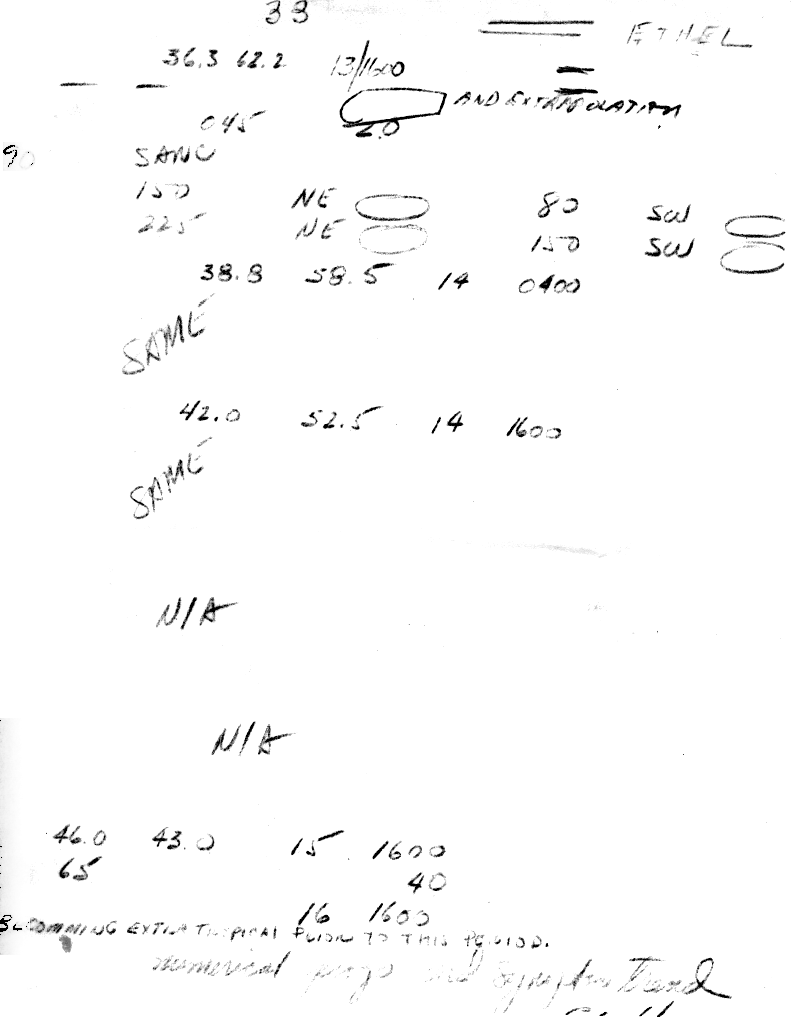 33
ETHEL
36.3 62.2 13/1600
AND EXTRAPOLATION
045 20
90 SAND
150 NE 80 SW
225 NE 150 SW
38.8 58.5 14 0400
SAME
42.0 52.5 14 1600
SAME
N/A
N/A
46.0 43.0 15 1600
65 40
16 1600
BECOMMING EXTRATROPICAL PRIOR TO THIS PERIOD.
numerical progs and Trend